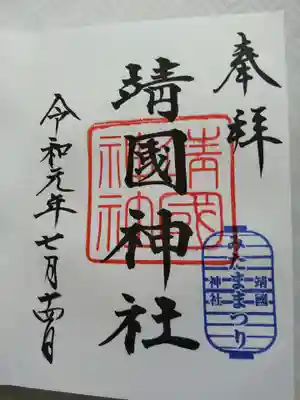 奉拝
靖國神社
靖国神社
みたままつり
靖國
神社
令和元年七月十四日